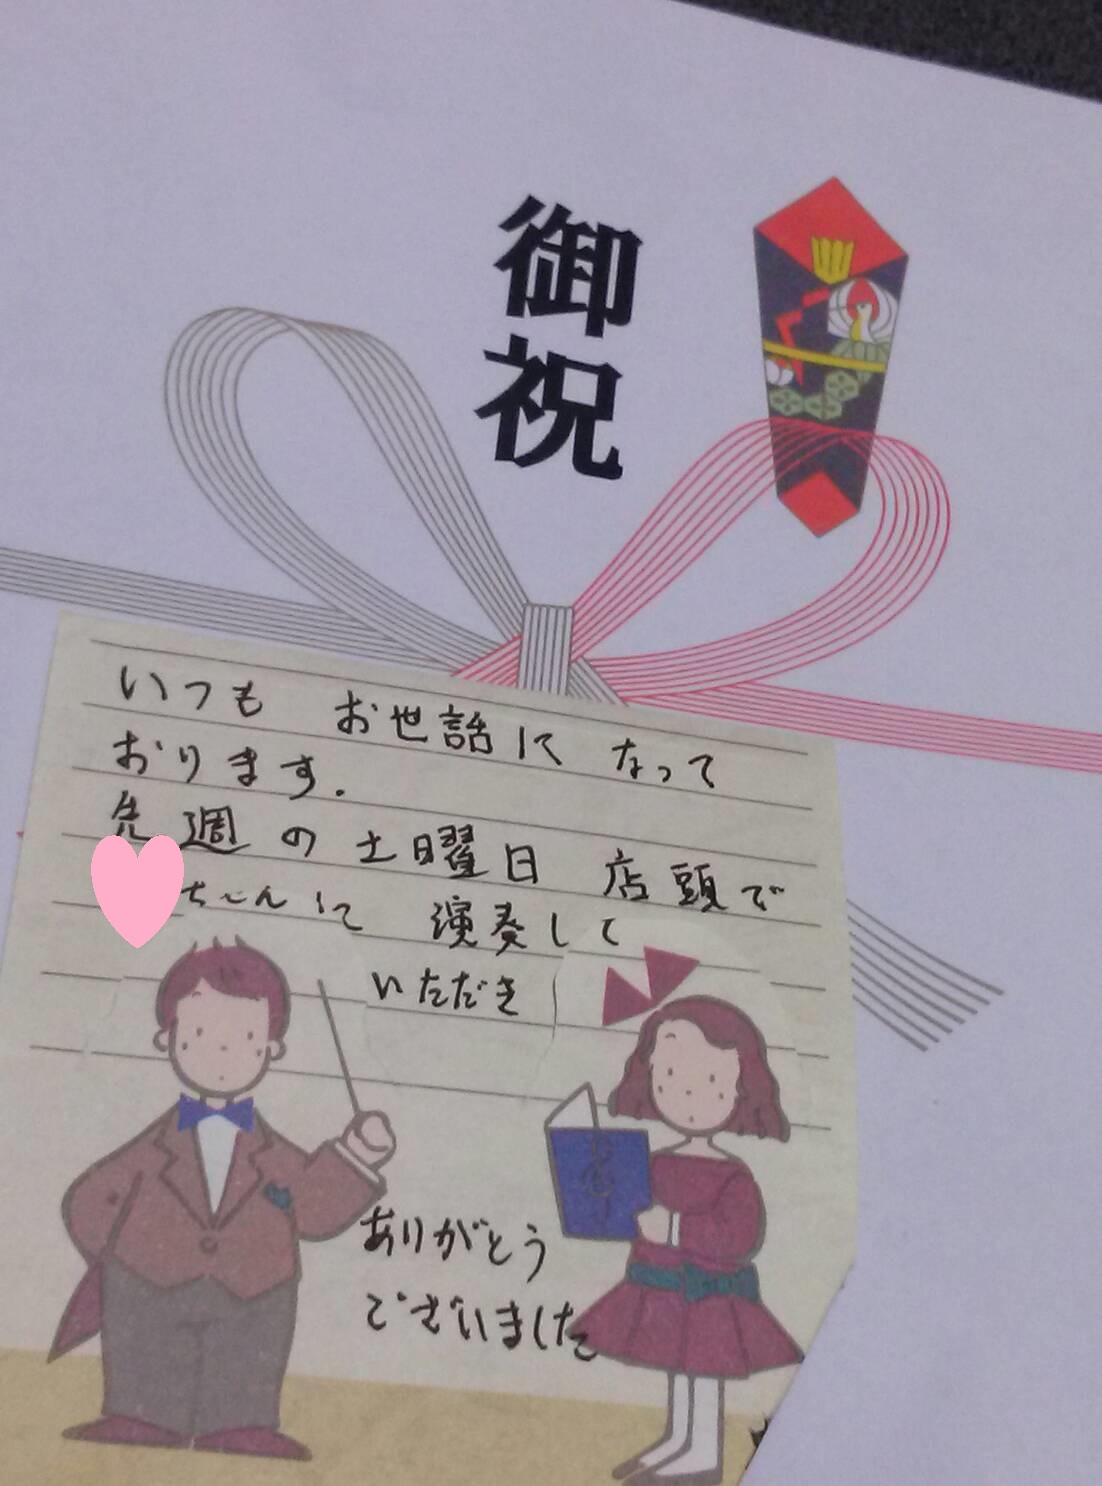 御祝
いつも お世話に なって
おります.
先週の土曜日 店頭で
ちゃんに 演奏して
いただき
ありがとう
ございました